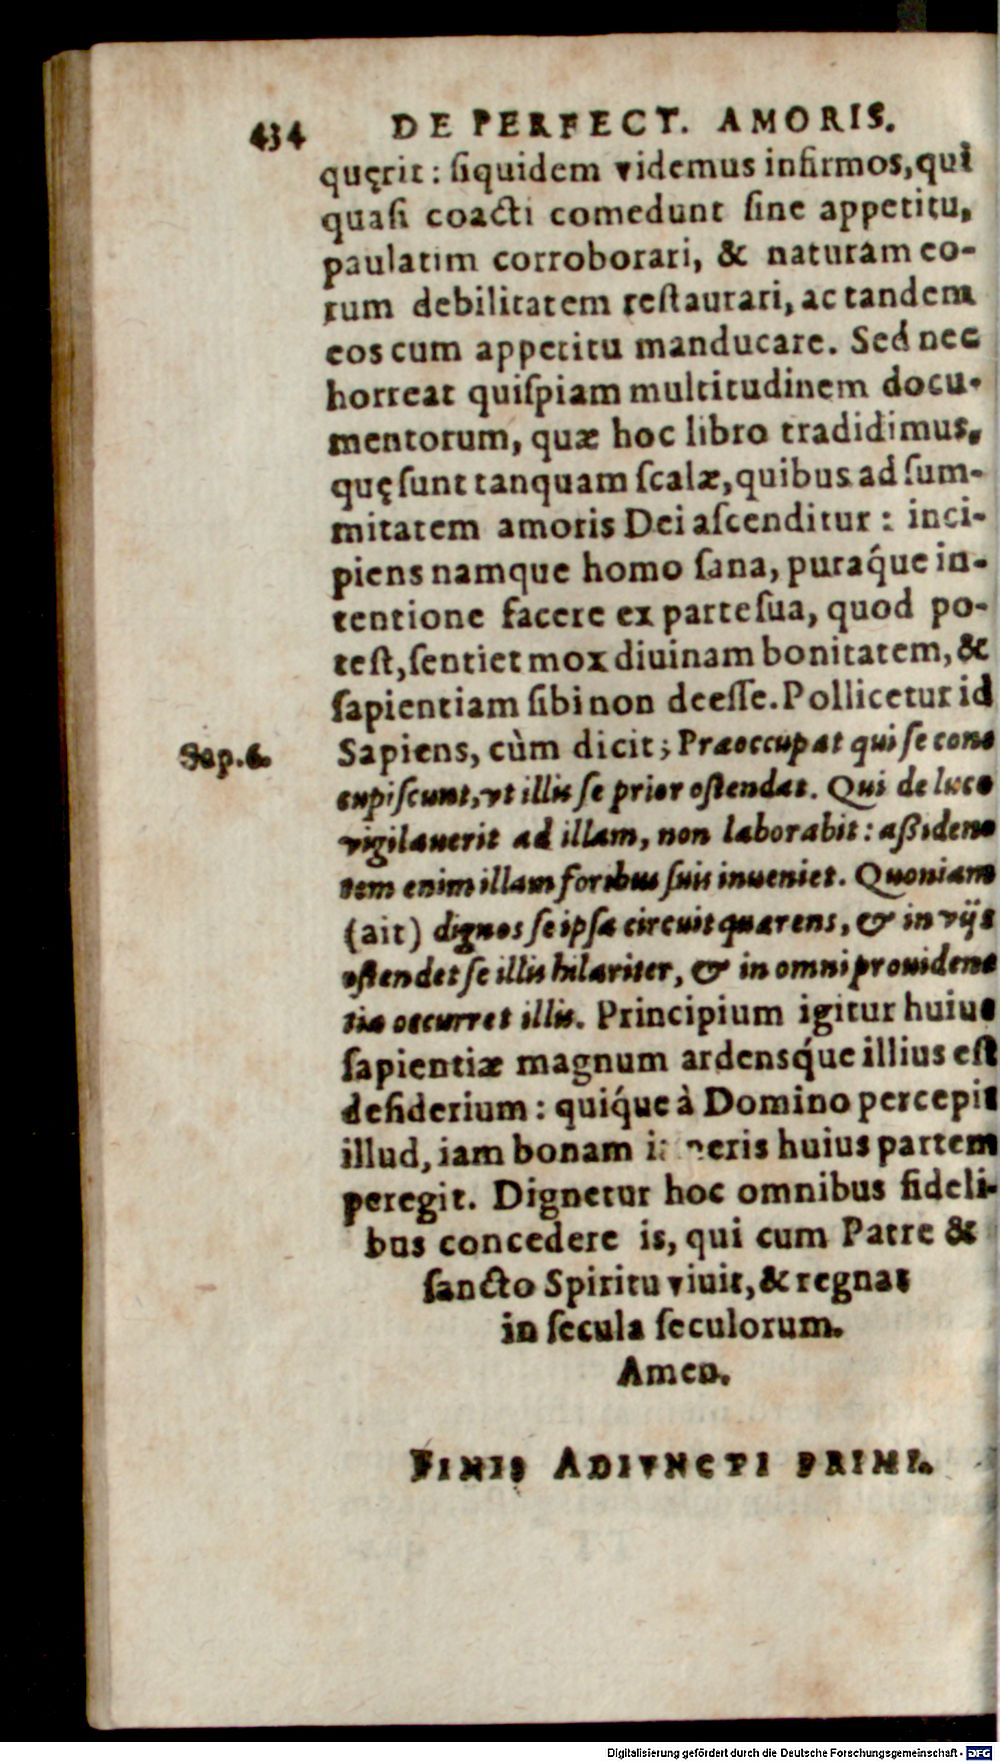 434 DE PERFECT. AMORIS.
quęrit: ſiquidem videmus infirmos, qui
quaſi coacti comedunt ſine appetitu,
paulatim corroborari, & naturam eo-
rum debilitatem reſtaurari, ac tandem
eos cum appetitu manducare. Sed nec
horreat quiſpiam multitudinem docu-
mentorum, quæ hoc libro tradidimus,
quę ſunt tanquam ſcalæ, quibus ad ſum-
mitatem amoris Dei aſcenditur: inci-
piens namque homo ſana, puraq́ue in-
tentione facere ex parte ſua, quod po-
teſt, ſentiet mox diuinam bonitatem, &
ſapientiam ſibi non deeſſe. Pollicetur id
Sap. 6. Sapiens, cùm dicit; Præoccupat qui ſe con-
cupiſcunt, vt illis ſe prior oſtendat. Qui de luce
vigilauerit ad illam, non laborabit: aßiden-
tem enim illam foribus ſuis inueniet. Quoniam
(ait) dignos ſe ipſa circuit quærens, & in vijs
oſtendet ſe illis hilariter, & in omni prouiden-
tia occurret illis. Principium igitur huius
ſapientiæ magnum ardensq́ue illius eſt
deſiderium: quiq́ue à Domino percepit
illud, iam bonam huius partem
peregit. Dignetur hoc omnibus fideli-
bus concedere is, qui cum Patre &
ſancto Spiritu viuit, & regnat
in ſecula ſeculorum.
Amen.
FINIS ADIVNCTI PRIMI.
Digitalisierung gefördert durch die Deutsche Forschungsgemeinschaft - DFG